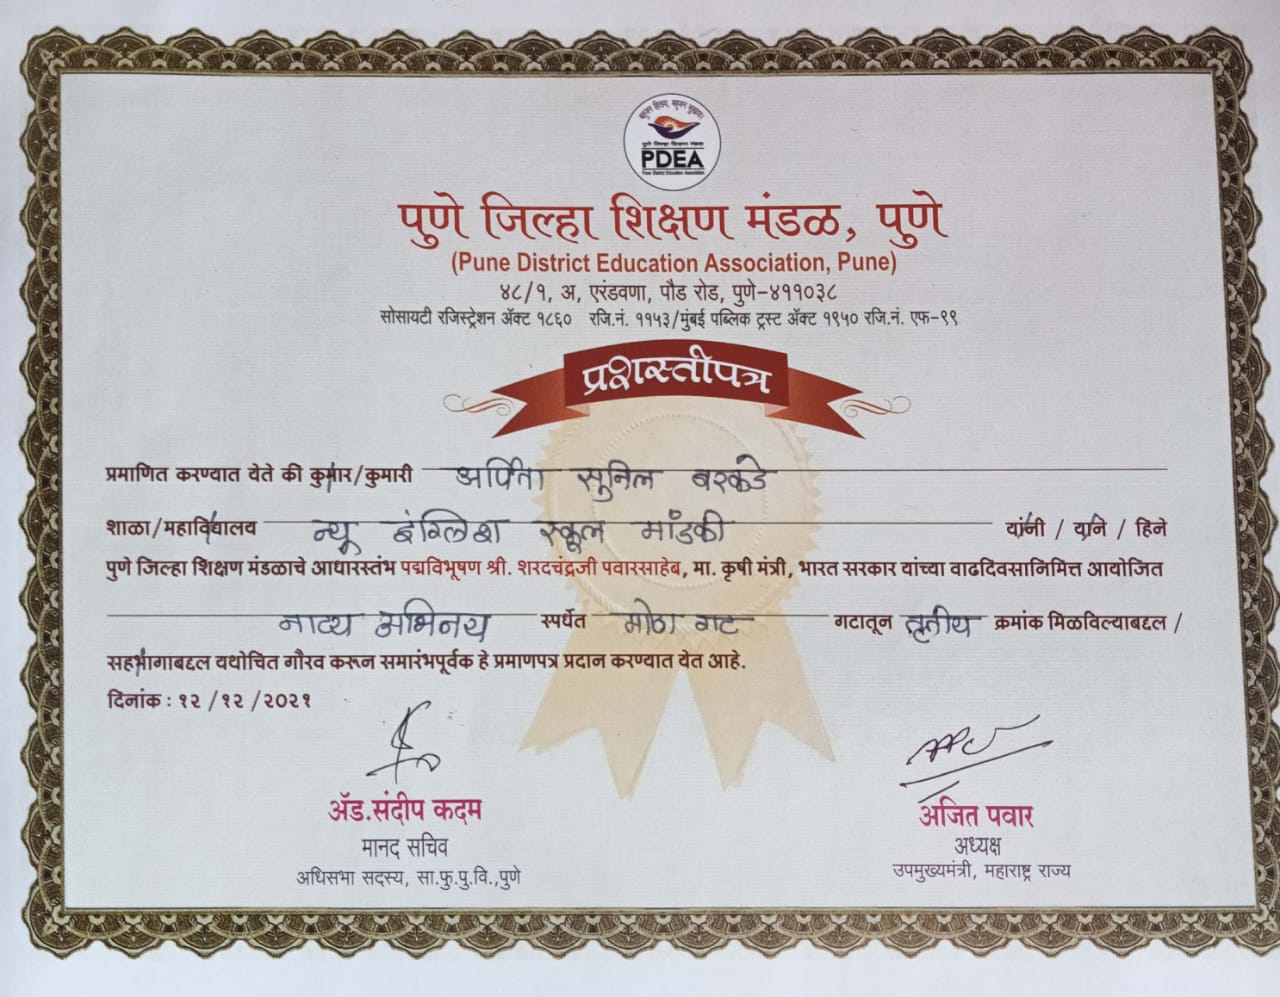 बहुजन हिताय, बहुजन सुखाय।
पुणे जिल्हा शिक्षण मंडळ
PDEA
Pune District Education Association
पुणे जिल्हा शिक्षण मंडळ, पुणे
(Pune District Education Association, Pune)
४८/१, अ, एरंडवणा, पौड रोड, पुणे-४११०३८
सोसायटी रजिस्ट्रेशन ॲक्ट १८६० रजि.नं. ११५३/मुंबई पब्लिक ट्रस्ट ॲक्ट १९५० रजि.नं. एफ-९९
प्रशस्तीपत्र
प्रमाणित करण्यात येते की कुमार/कुमारी अर्पिता सुनिल बरकडे
शाळा/महाविद्यालय न्यू इंग्लिश स्कूल मांडकी यांनी / याने / हिने
पुणे जिल्हा शिक्षण मंडळाचे आधारस्तंभ पद्मविभूषण श्री. शरदचंद्रजी पवारसाहेब, मा. कृषी मंत्री, भारत सरकार यांच्या वाढदिवसानिमित्त आयोजित
नाट्य अभिनय स्पर्धेत मोठा गट गटातून तृतीय क्रमांक मिळविल्याबद्दल /
सहभागाबद्दल यथोचित गौरव करून समारंभपूर्वक हे प्रमाणपत्र प्रदान करण्यात येत आहे.
दिनांक : १२ /१२ /२०२१
ॲड.संदीप कदम
मानद सचिव
अधिसभा सदस्य, सा.फु.पु.वि.,पुणे
अजित पवार
अध्यक्ष
उपमुख्यमंत्री, महाराष्ट्र राज्य